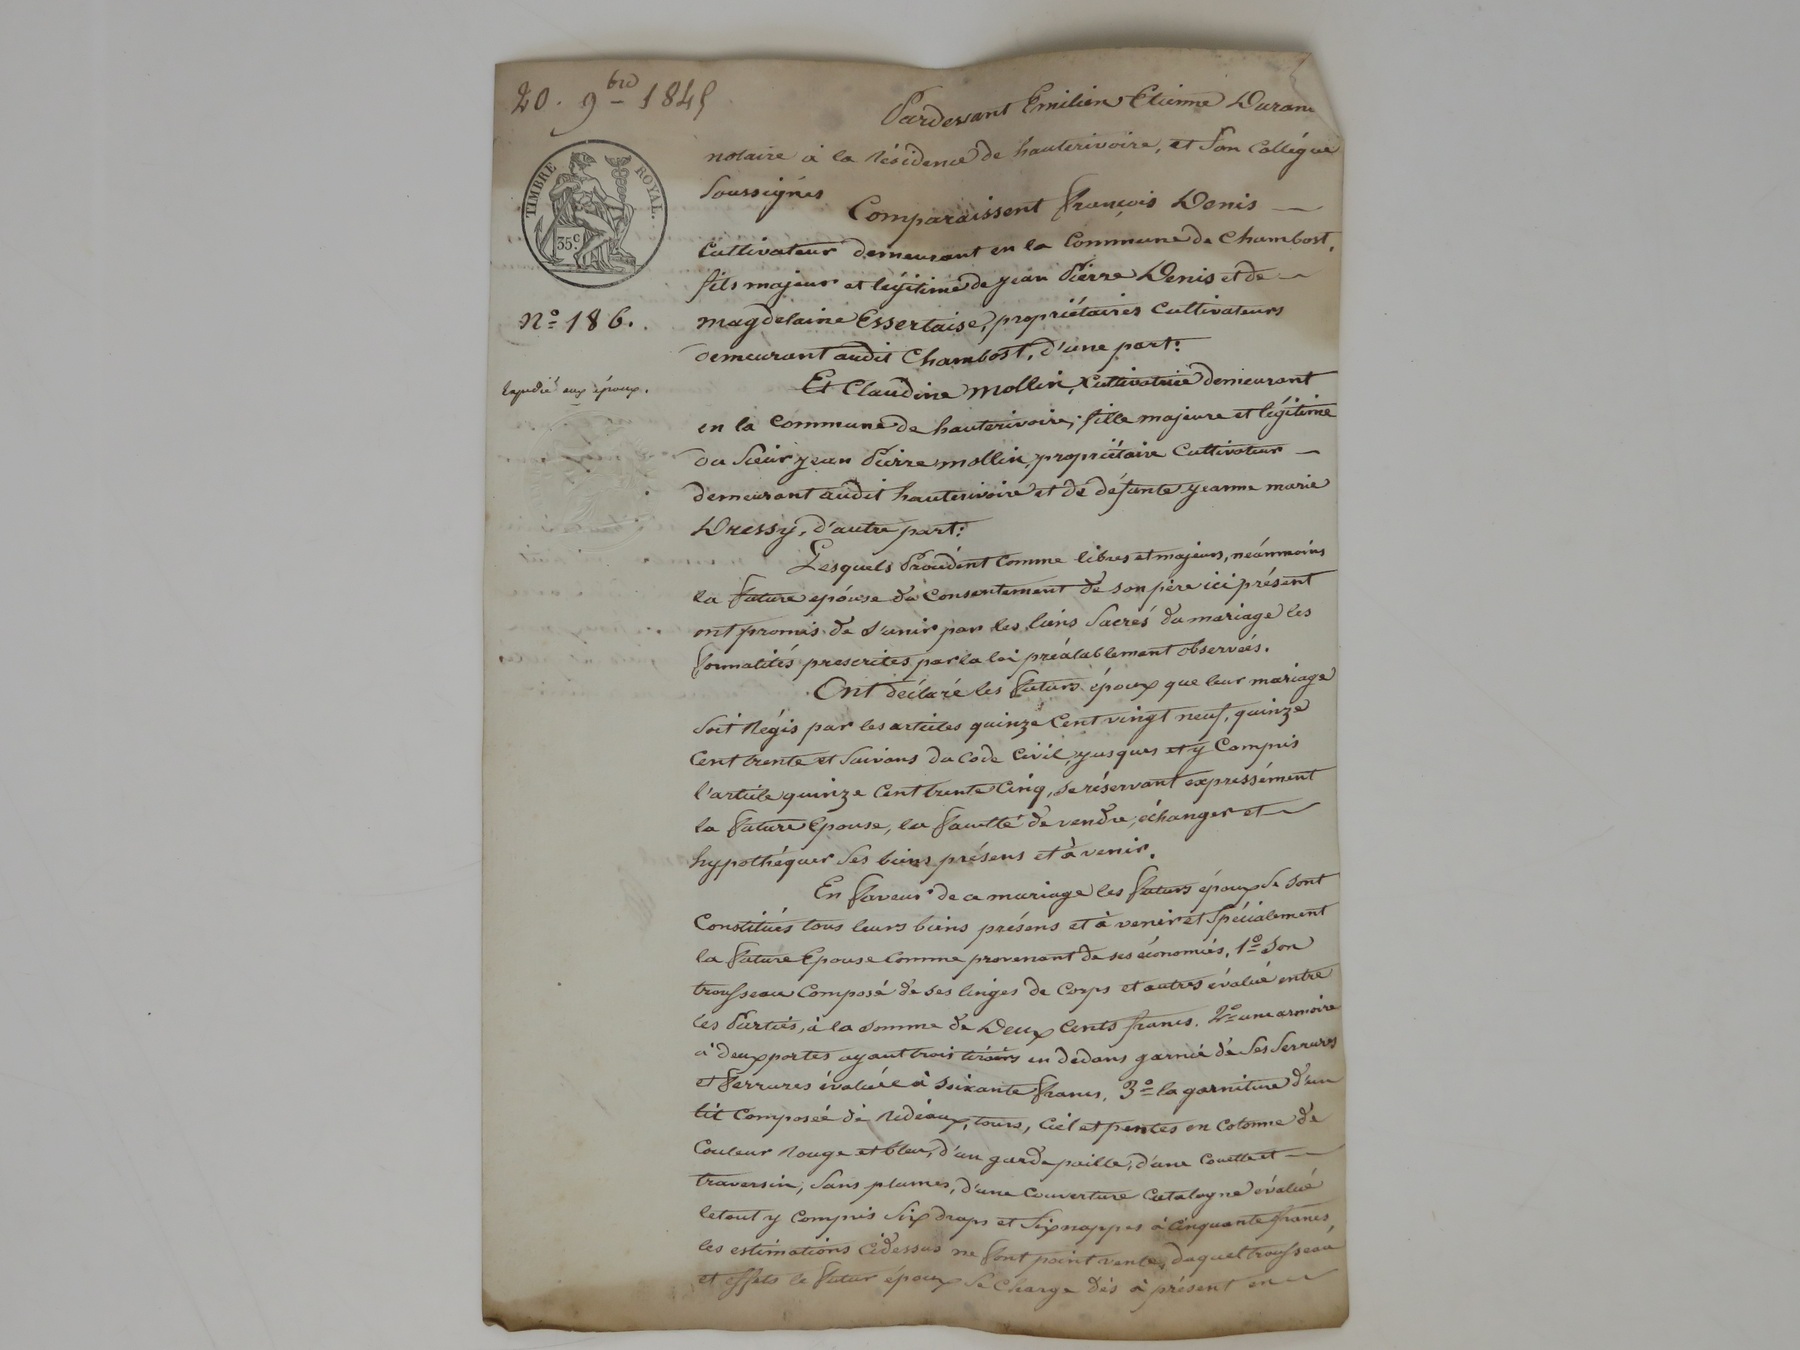 20. 9bre 1845
TIMBRE ROYAL.
35c.
No 186.
Expedié aux époux.
Pardevant Emilien Etienne Duran
notaire à la résidence de hauterivoire, et Son Collégue
Soussignés
Comparaissent françois Denis
Cultivateur demeurant en la Commune de Chambost,
fils majeur et légitime de jean Pierre Denis et de
magdelaine Essertaise, propriétaires Cultivateurs
demeurant audit Chambost, d'une part:
Et Claudine Mollin, Cultivatrice demeurant
en la Commune de hauterivoire, fille majeure et légitime
du Sieur jean Pierre mollin, propriétaire Cultivateur
demeurant audit hauterivoire et de défunte jeanne marie
Dressy, d'autre part:
Lesquels Procédent Comme libres et majeurs, néanmoins
la future epouse du Consentement de son père ici présent
ont promis de s'unir par les liens Sacrés du mariage les
formalités prescrites par la loi préalablement observées.
Ont déclaré les futurs époux que leur mariage
Soit Régis par les articles quinze Cent vingt neuf, quinze
Cent trente et Suivans du Code Civil, jusques et y Compris
l'article quinze Cent trente Cinq, se réservant expressément
la future Epouse, la faculté de vendre, échanger et
hypothéquer Ses biens présens et à venir.
En faveur de ce mariage les futurs époux Se Sont
Constitués tous leurs biens présens et à venir et Spécialement
la future Epouse Comme provenant de ses économies, 1o Son
trousseau Composé de ses linges de Corps et autres évalué entre
les Parties, à la Somme de Deux Cents francs. 2o une armoire
à deux portes ayant trois tiroirs en dedans garnie de Ses Serrures
et ferrures évaluée à Soixante francs, 3o la garniture d'un
lit Composée de Rideaux, tours, Ciel et pentes en Cotonne de
Couleur Rouge et bleu, d'un garde paille, d'une Couette et
traversin, Sans plumes, d'une Couverture Catalogne évalué
le tout y Compris Six draps et Six nappes à Cinquante francs,
les estimations Cidessus ne font point vente, duquel trousseau
et effets le futur époux Se Charge dès à présent en